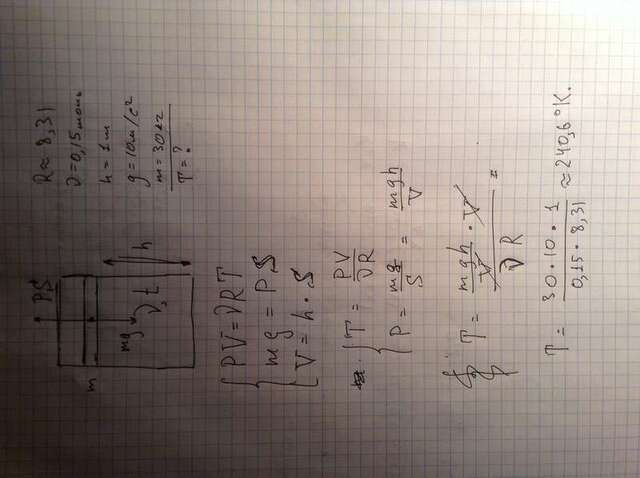 R≈8,31
ν=0,15моль
h=1м
g=10м/с²
m=30кг
T=?
PS
m
mg
ν, t
h
PV=νRT
mg=PS
V=h·S
T = PV/νR
P = mg/S = mgh/V
T = (mgh/V · V)/νR =
T = (30·10·1)/(0,15·8,31) ≈240,6°K.